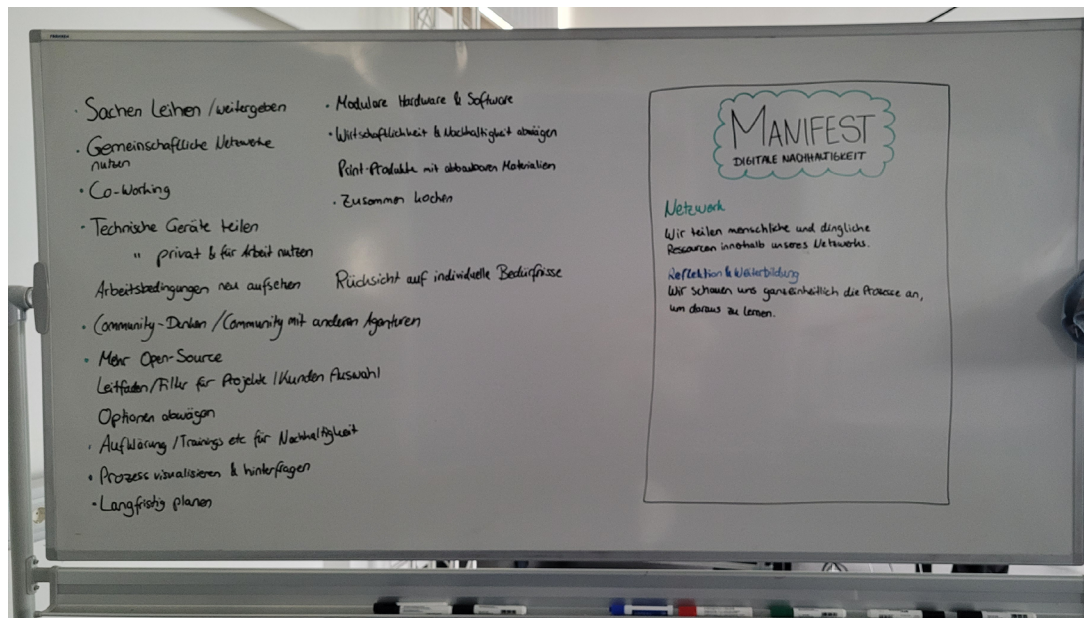 · Sachen Leihen / weitergeben
· Gemeinschaftliche Netzwerke
nutzen
· Co-Working
· Technische Geräte teilen
" privat & für Arbeit nutzen
Arbeitsbedingungen neu aufsetzen
· Community-Denken / Community mit anderen Agenturen
· Mehr Open-Source
Leitfaden/Filter für Projekte / Kunden Auswahl
Optionen abwägen
· Aufklärung / Trainings etc für Nachhaltigkeit
· Prozess visualisieren & hinterfragen
· Langfristig planen
· Modulare Hardware & Software
· Wirtschaftlichkeit & Nachhaltigkeit abwägen
Print-Produkte mit abbaubaren Materialien
· Zusammen kochen
Rücksicht auf individuelle Bedürfnisse
MANIFEST
DIGITALE NACHHALTIGKEIT
Netzwerk
Wir teilen menschliche und dingliche
Ressourcen innerhalb unseres Netzwerks.
Reflektion & Weiterbildung
Wir schauen uns ganzeinheitlich die Prozesse an,
um daraus zu lernen.